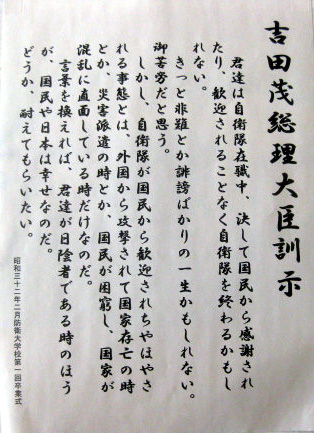 吉田茂総理大臣訓示
君達は自衛隊在職中、決して国民から感謝され
たり、歓迎されることなく自衛隊を終わるかもし
れない。
きっと非難とか誹謗ばかりの一生かもしれない。
御苦労だと思う。
しかし、自衛隊が国民から歓迎されちやほやさ
れる事態とは、外国から攻撃されて国家存亡の時
とか、災害派遣の時とか、国民が困窮し、国家が
混乱に直面している時だけなのだ。
言葉を換えれば、君達が日陰者である時のほう
が、国民や日本は幸せなのだ。
どうか、耐えてもらいたい。
昭和三十二年二月防衛大学校第一回卒業式